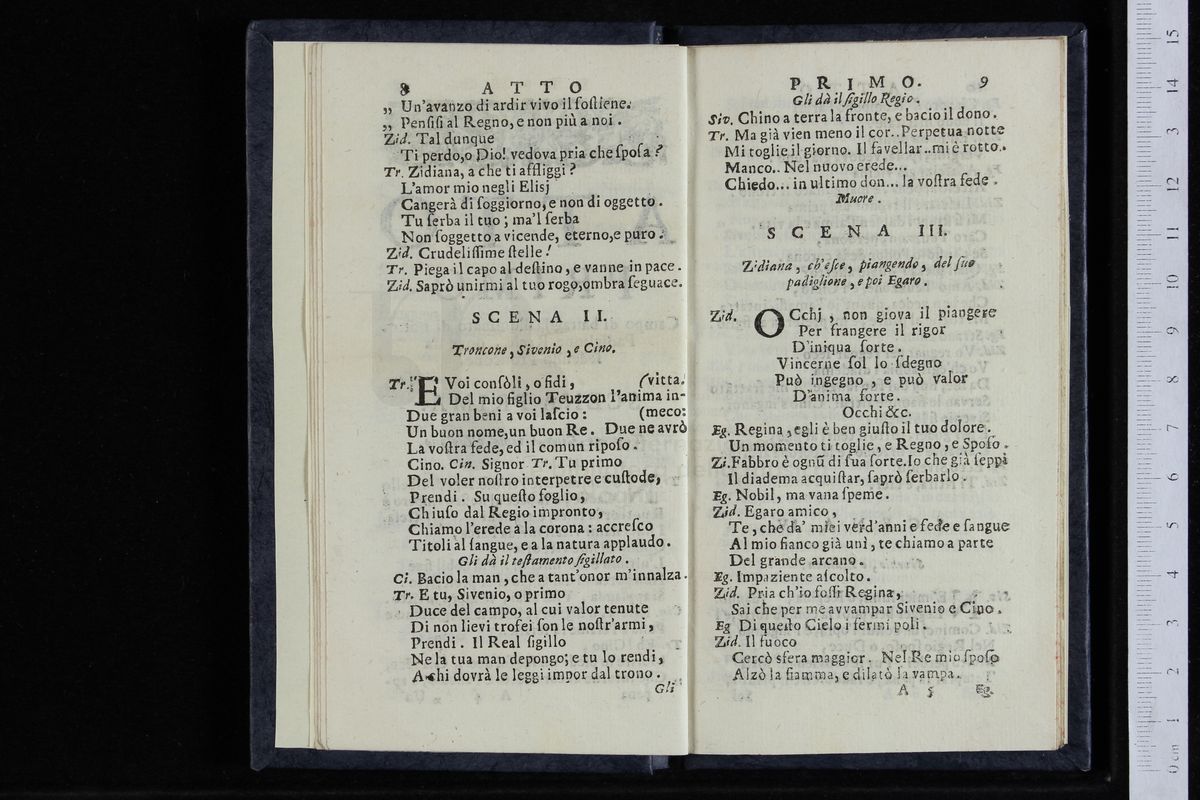 8 ATTO
„ Un'avanzo di ardir vivo il ſoſtiene.
„ Penſiſi al Regno, e non più a noi.
Zid. Tal dunque
Ti perdo, o Dio! vedova pria che ſpoſa?
Tr. Zidiana, a che ti affliggi?
L'amor mio negli Elisj
Cangerà di ſoggiorno, e non di oggetto.
Tu ſerba il tuo; ma'l ſerba
Non ſoggetto a vicende, eterno, e puro.
Zid. Crudeliſſime ſtelle!
Tr. Piega il capo al deſtino, e vanne in pace.
Zid. Saprò unirmi al tuo rogo, ombra ſeguace.
SCENA II.
Troncone, Sivenio, e Cino.
Tr. E Voi conſòli, o fidi, (vitta.
Del mio figlio Teuzzon l'anima in-
Due gran beni a voi laſcio: (meco:
Un buon nome, un buon Re. Due ne avrò
La voſtra fede, ed il comun ripoſo.
Cino. Cin. Signor Tr. Tu primo
Del voler noſtro interpetre e cuſtode,
Prendi. Su queſto foglio,
Chiuſo dal Regio impronto,
Chiamo l'erede a la corona: accreſco
Titoli al ſangue, e a la natura applaudo.
Gli dà il teſtamento ſigillato.
Ci. Bacio la man, che a tant'onor m'innalza.
Tr. E tu, Sivenio, o primo
Duce del campo, al cui valor tenute
Di non lievi trofei ſon le noſtr'armi,
Prendi. Il Real ſigillo
Ne la tua man depongo; e tu lo rendi,
A chi dovrà le leggi impor dal trono.
Gli
PRIMO. 9
Gli dà il ſigillo Regio.
Siv. Chino a terra la fronte, e bacio il dono.
Tr. Ma già vien meno il cor.. Perpetua notte
Mi toglie il giorno. Il favellar..mi è rotto..
Manco.. Nel nuovo erede...
Chiedo... in ultimo don... la voſtra fede.
Muore.
SCENA III.
Zidiana, ch'eſce, piangendo, del ſuo
padiglione, e poi Egaro.
Zid. OCchj, non giova il piangere
Per frangere il rigor
D'iniqua ſorte.
Vincerne ſol lo ſdegno
Può ingegno, e può valor
D'anima forte.
Occhi &c.
Eg. Regina, egli è ben giuſto il tuo dolore.
Un momento ti toglie, e Regno, e Spoſo.
Zi. Fabbro è ognũ di ſua ſorte. Io che già ſeppi
Il diadema acquiſtar, ſaprò ſerbarlo.
Eg. Nobil, ma vana ſpeme.
Zid. Egaro amico,
Te, che da' miei verd'anni e fede e ſangue
Al mio fianco già unì, te chiamo a parte
Del grande arcano.
Eg. Impaziente aſcolto.
Zid. Pria ch'io foſſi Regina,
Sai che per me avvampar Sivenio e Cino.
Eg Di queſto Cielo i fermi poli.
Zid. Il fuoco
Cercò sfera maggior. Nel Re mio ſpoſo
Alzò la fiamma, e dilatò la vampa.
A 5 Eg.